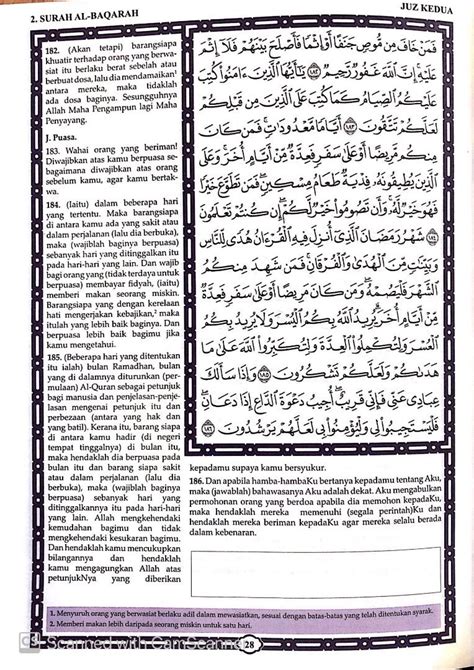 2. SURAH AL-BAQARAH
JUZ KEDUA
182. (Akan tetapi) barangsiapa
khuatir terhadap orang yang berwa-
siat itu berlaku berat sebelah atau
berbuat dosa, lalu dia mendamaikan¹
antara mereka, maka tidaklah
ada dosa baginya. Sesungguhnya
Allah Maha Pengampun lagi Maha
Penyayang.
J. Puasa.
183. Wahai orang yang beriman!
Diwajibkan atas kamu berpuasa se-
bagaimana diwajibkan atas orang
sebelum kamu, agar kamu bertak-
wa.
184. (Iaitu) dalam beberapa hari
yang tertentu. Maka barangsiapa
di antara kamu ada yang sakit atau
dalam perjalanan (lalu dia berbuka),
maka (wajiblah baginya berpuasa)
sebanyak hari yang ditinggalkan itu
pada hari-hari yang lain. Dan wajib
bagi orang yang (tidak terdaya untuk
berpuasa) membayar fidyah, (iaitu)
memberi makan seorang miskin.
Barangsiapa yang dengan kerelaan
hati mengerjakan kebajikan,² maka
itulah yang lebih baik baginya. Dan
berpuasa lebih baik bagimu jika
kamu mengetahui.
185. (Beberapa hari yang ditentukan
itu ialah) bulan Ramadhan, bulan
yang di dalamnya diturunkan (per-
mulaan) Al-Quran sebagai petunjuk
bagi manusia dan penjelasan-penje-
lasan mengenai petunjuk itu dan
perbezaan (antara yang hak dan
yang batil). Kerana itu, barang siapa
di antara kamu hadir (di negeri
tempat tinggalnya) di bulan itu,
maka hendaklah dia berpuasa pada
bulan itu dan barang siapa sakit
atau dalam perjalanan (lalu dia
berbuka), maka (wajiblah baginya
berpuasa), sebanyak hari yang
ditinggalkannya itu pada hari-hari
yang lain. Allah menghendaki
kemudahan bagimu dan tidak
menghendaki kesukaran bagimu.
Dan hendaklah kamu mencukupkan
bilangannya dan hendaklah
kamu mengagungkan Allah atas
petunjukNya yang diberikan
فَمَنْ خَافَ مِن مُّوصٍ جَنَفًا أَوْ إِثْمًا فَأَصْلَحَ بَيْنَهُمْ فَلَا إِثْمَ
عَلَيْهِ إِنَّ ٱللَّهَ غَفُورٌ رَّحِيمٌ ١٨٢ يَٰٓأَيُّهَا ٱلَّذِينَ ءَامَنُوا۟ كُتِبَ
عَلَيْكُمُ ٱلصِّيَامُ كَمَا كُتِبَ عَلَى ٱلَّذِينَ مِن قَبْلِكُمْ
لَعَلَّكُمْ تَتَّقُونَ ١٨٣ أَيَّامًا مَّعْدُودَٰتٍ فَمَن كَانَ
مِنكُم مَّرِيضًا أَوْ عَلَىٰ سَفَرٍ فَعِدَّةٌ مِّنْ أَيَّامٍ أُخَرَ وَعَلَى
ٱلَّذِينَ يُطِيقُونَهُۥ فِدْيَةٌ طَعَامُ مِسْكِينٍ فَمَن تَطَوَّعَ خَيْرًا
فَهُوَ خَيْرٌ لَّهُۥ وَأَن تَصُومُوا۟ خَيْرٌ لَّكُمْ إِن كُنتُمْ تَعْلَمُونَ
١٨٤ شَهْرُ رَمَضَانَ ٱلَّذِىٓ أُنزِلَ فِيهِ ٱلْقُرْءَانُ هُدًى لِّلنَّاسِ
وَبَيِّنَٰتٍ مِّنَ ٱلْهُدَىٰ وَٱلْفُرْقَانِ فَمَن شَهِدَ مِنكُمُ
ٱلشَّهْرَ فَلْيَصُمْهُ وَمَن كَانَ مَرِيضًا أَوْ عَلَىٰ سَفَرٍ فَعِدَّةٌ
مِّنْ أَيَّامٍ أُخَرَ يُرِيدُ ٱللَّهُ بِكُمُ ٱلْيُسْرَ وَلَا يُرِيدُ بِكُمُ
ٱلْعُسْرَ وَلِتُكْمِلُوا۟ ٱلْعِدَّةَ وَلِتُكَبِّرُوا۟ ٱللَّهَ عَلَىٰ مَا
هَدَىٰكُمْ وَلَعَلَّكُمْ تَشْكُرُونَ ١٨٥ وَإِذَا سَأَلَكَ
عِبَادِى عَنِّى فَإِنِّى قَرِيبٌ أُجِيبُ دَعْوَةَ ٱلدَّاعِ إِذَا دَعَانِ
فَلْيَسْتَجِيبُوا۟ لِى وَلْيُؤْمِنُوا۟ بِى لَعَلَّهُمْ يَرْشُدُونَ ١٨٦
kepadamu supaya kamu bersyukur.
186. Dan apabila hamba-hambaKu bertanya kepadamu tentang Aku,
maka (jawablah) bahawasanya Aku adalah dekat. Aku mengabulkan
permohonan orang yang berdoa apabila dia memohon kepadaKu,
maka hendaklah mereka memenuhi (segala perintah)Ku dan
hendaklah mereka beriman kepadaKu agar mereka selalu berada
dalam kebenaran.
1. Menyuruh orang yang berwasiat berlaku adil dalam mewasiatkan, sesuai dengan batas-batas yang telah ditentukan syarak.
2. Memberi makan lebih daripada seorang miskin untuk satu hari.
28
CS Scanned with CamScanner